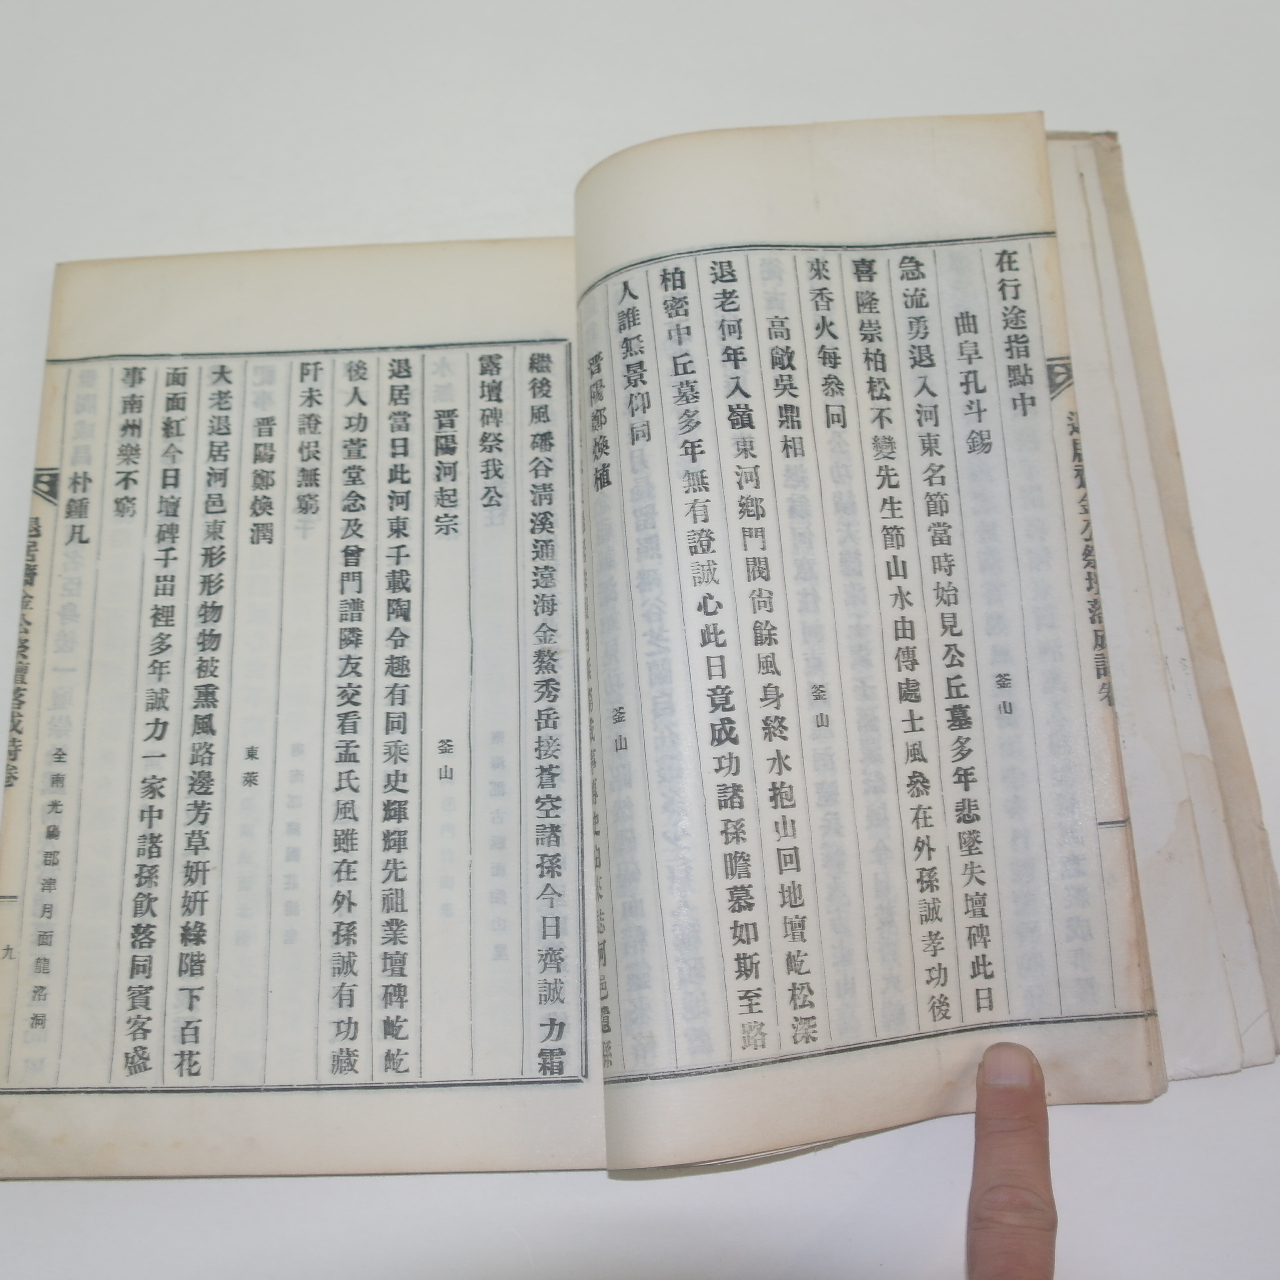 在行途指點中
曲阜孔斗錫
釜山
急流勇退入河東名節當時始見公丘墓多年悲墜失壇碑此日
喜隆崇柏松不變先生節山水由傳處士風叅在外孫誠孝功後
來香火每叅同
高敞吳鼎相
釜山
退老何年入嶺東河鄉門閥尙餘風身終水抱山回地壇屹松深
柏密中丘墓多年無有證誠心此日竟成功諸孫瞻慕如斯至路
人誰無景仰同
晋陽鄭煥植
釜山
繼後風磻谷淸溪通遠海金鰲秀岳接蒼空諸孫今日齊誠力霜
露壇碑祭我公
晋陽河起宗
釜山
退居當日此河東千載陶令趣有同乘史輝輝先祖業壇碑屹屹
後人功萱堂念及曾門譜隣友交看孟氏風雖在外孫誠有功藏
阡未證恨無窮
晋陽鄭煥潤
東萊
大老退居河邑東形形物物被薰風路邊芳草妍妍綠階下百花
面面紅今日壇碑千峀裡多年誠力一家中諸孫飮落同賓客盛
事南州樂不窮
朴鍾凡
全南光陽郡津月面龍洛洞
退居齋金公祭壇落成詩卷
九